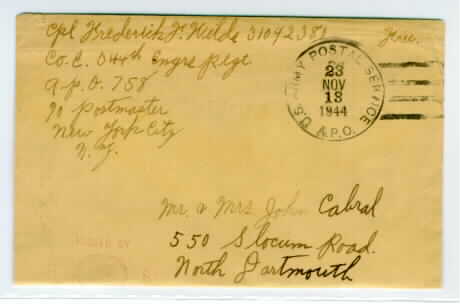 Cpl Frederick F. Wilde 31092381
Free.
Co. C. 344th Engrs Regt
A.P.O. 758
℅ Postmaster
New York City
N.Y.
U.S. ARMY POSTAL SERVICE
23
NOV
13
1944
A.P.O.
Mr. & Mrs John Cabral
550 Slocum Road.
North Dartmouth